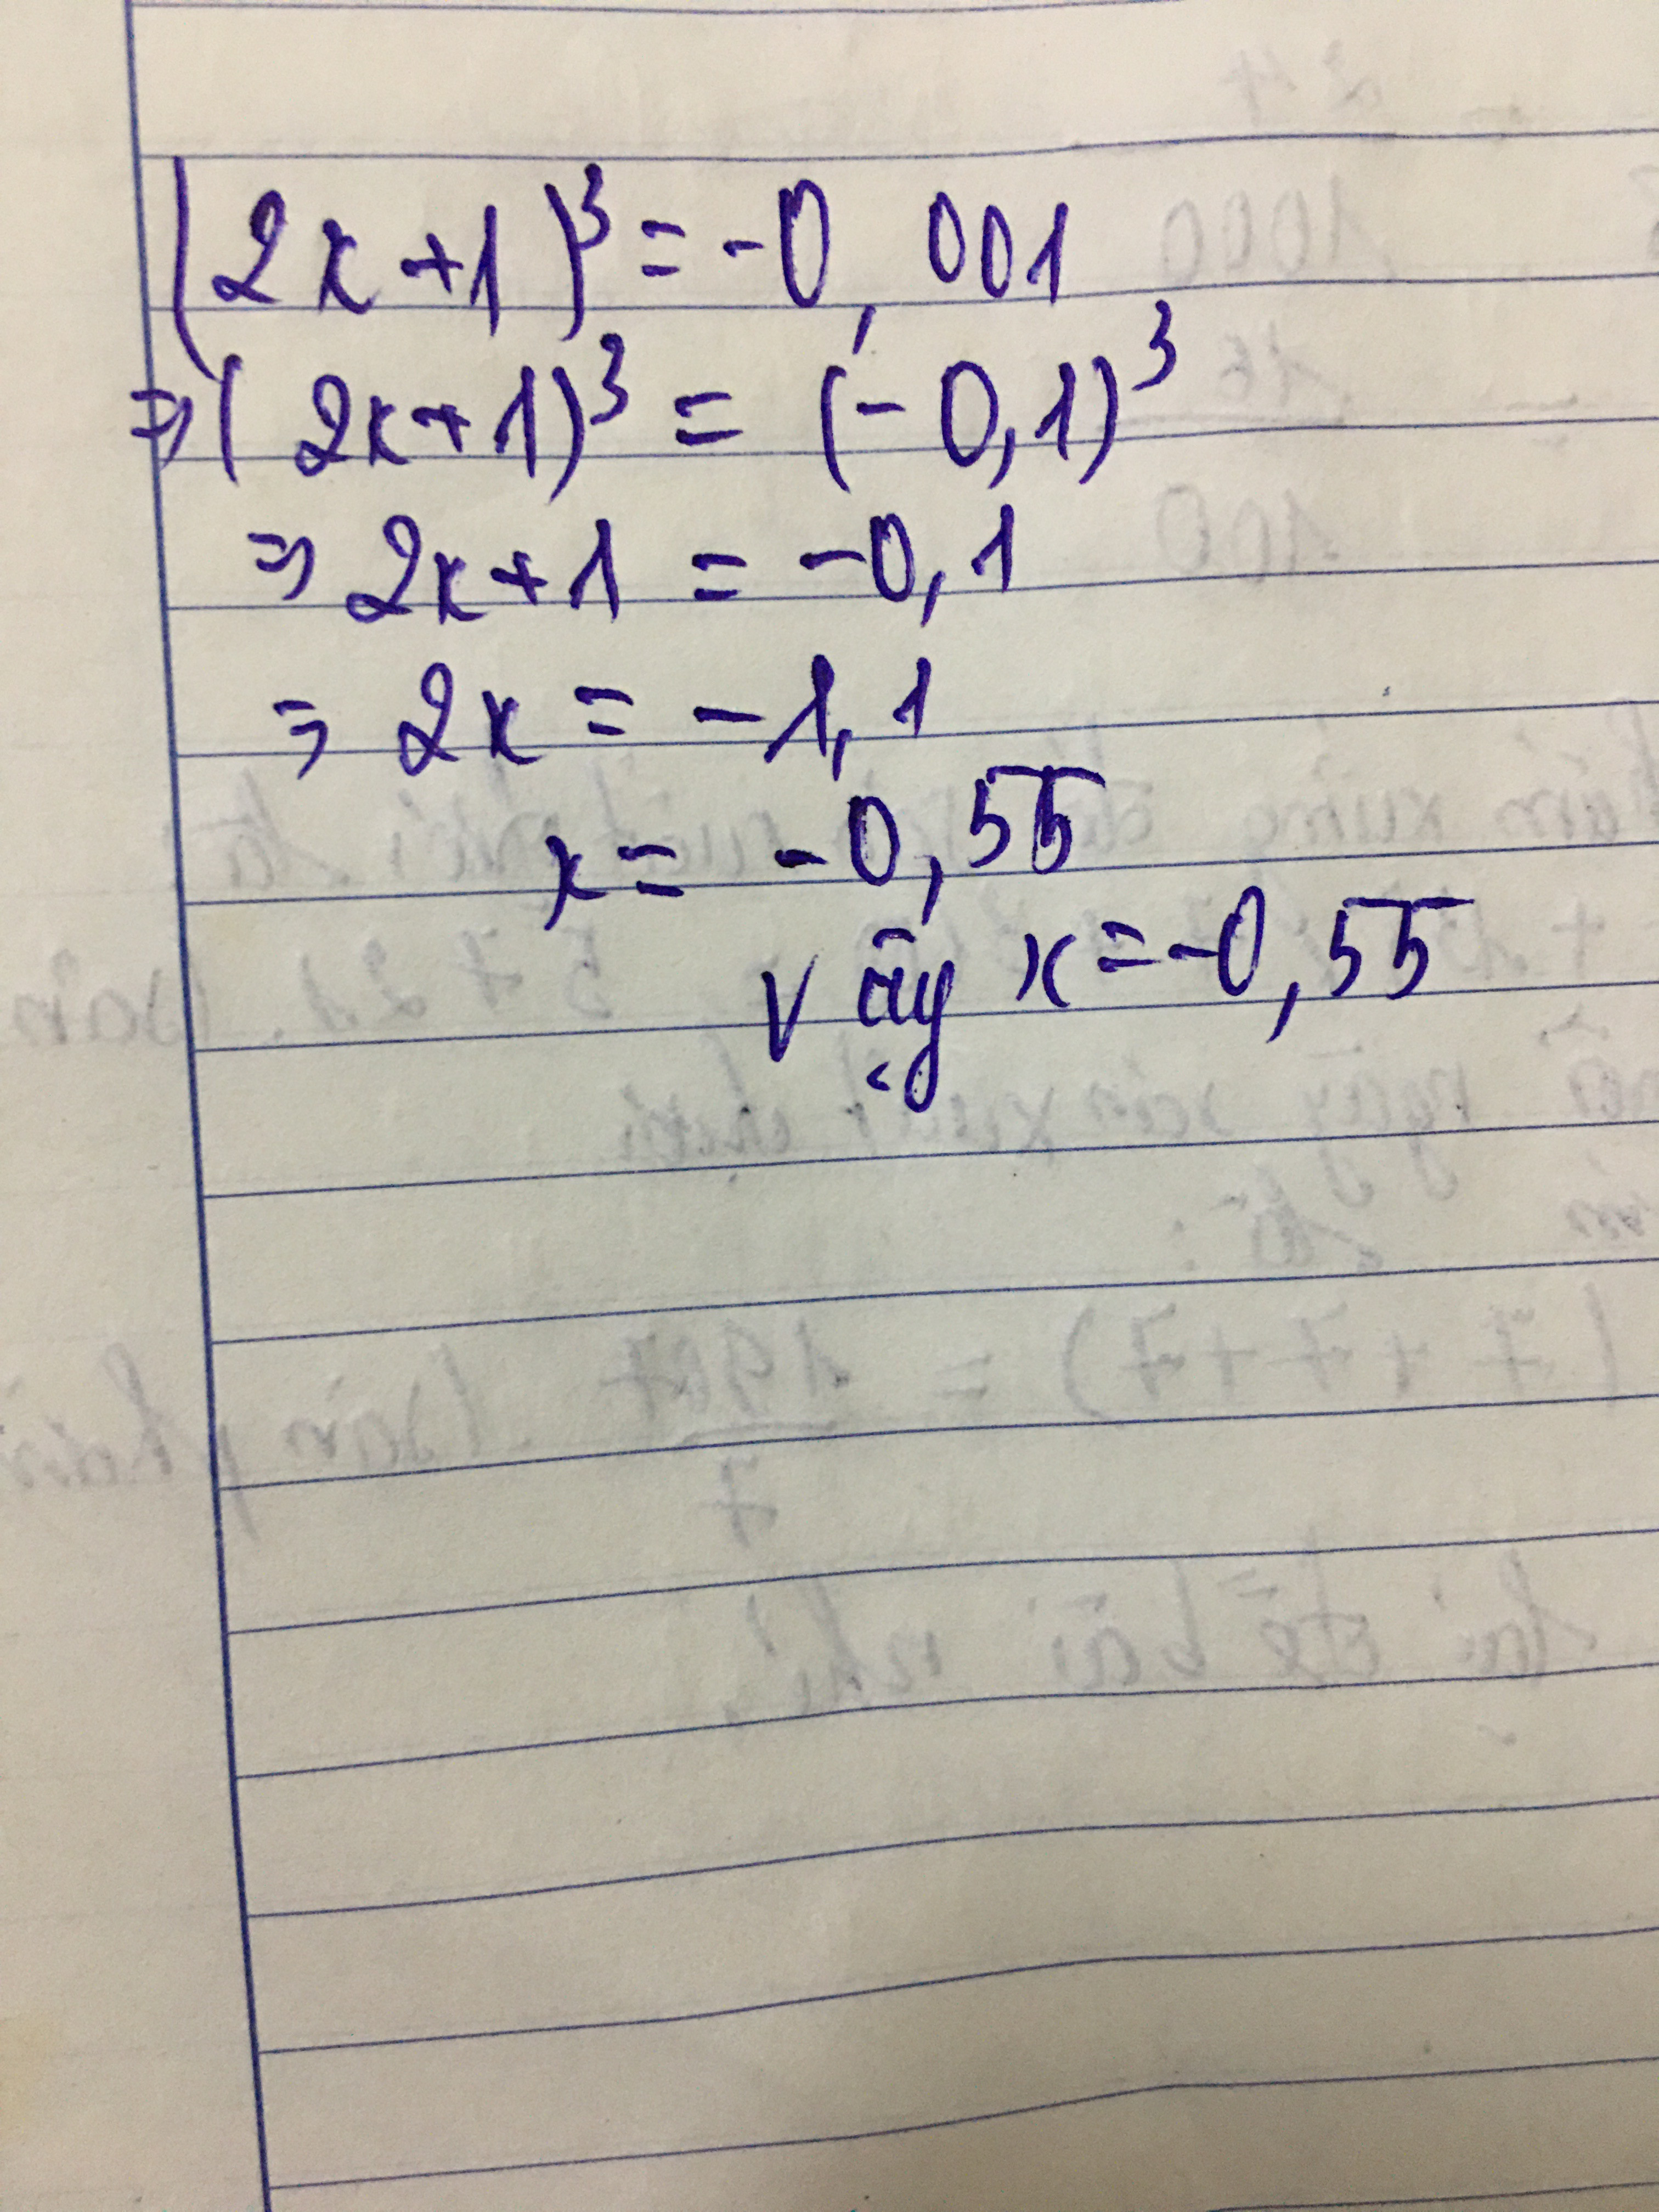 (2x+1)³ = -0,001
⇒ (2x+1)³ = (-0,1)³
⇒ 2x+1 = -0,1
⇒ 2x = -1,1
x = -0,55
Vậy x = -0,55